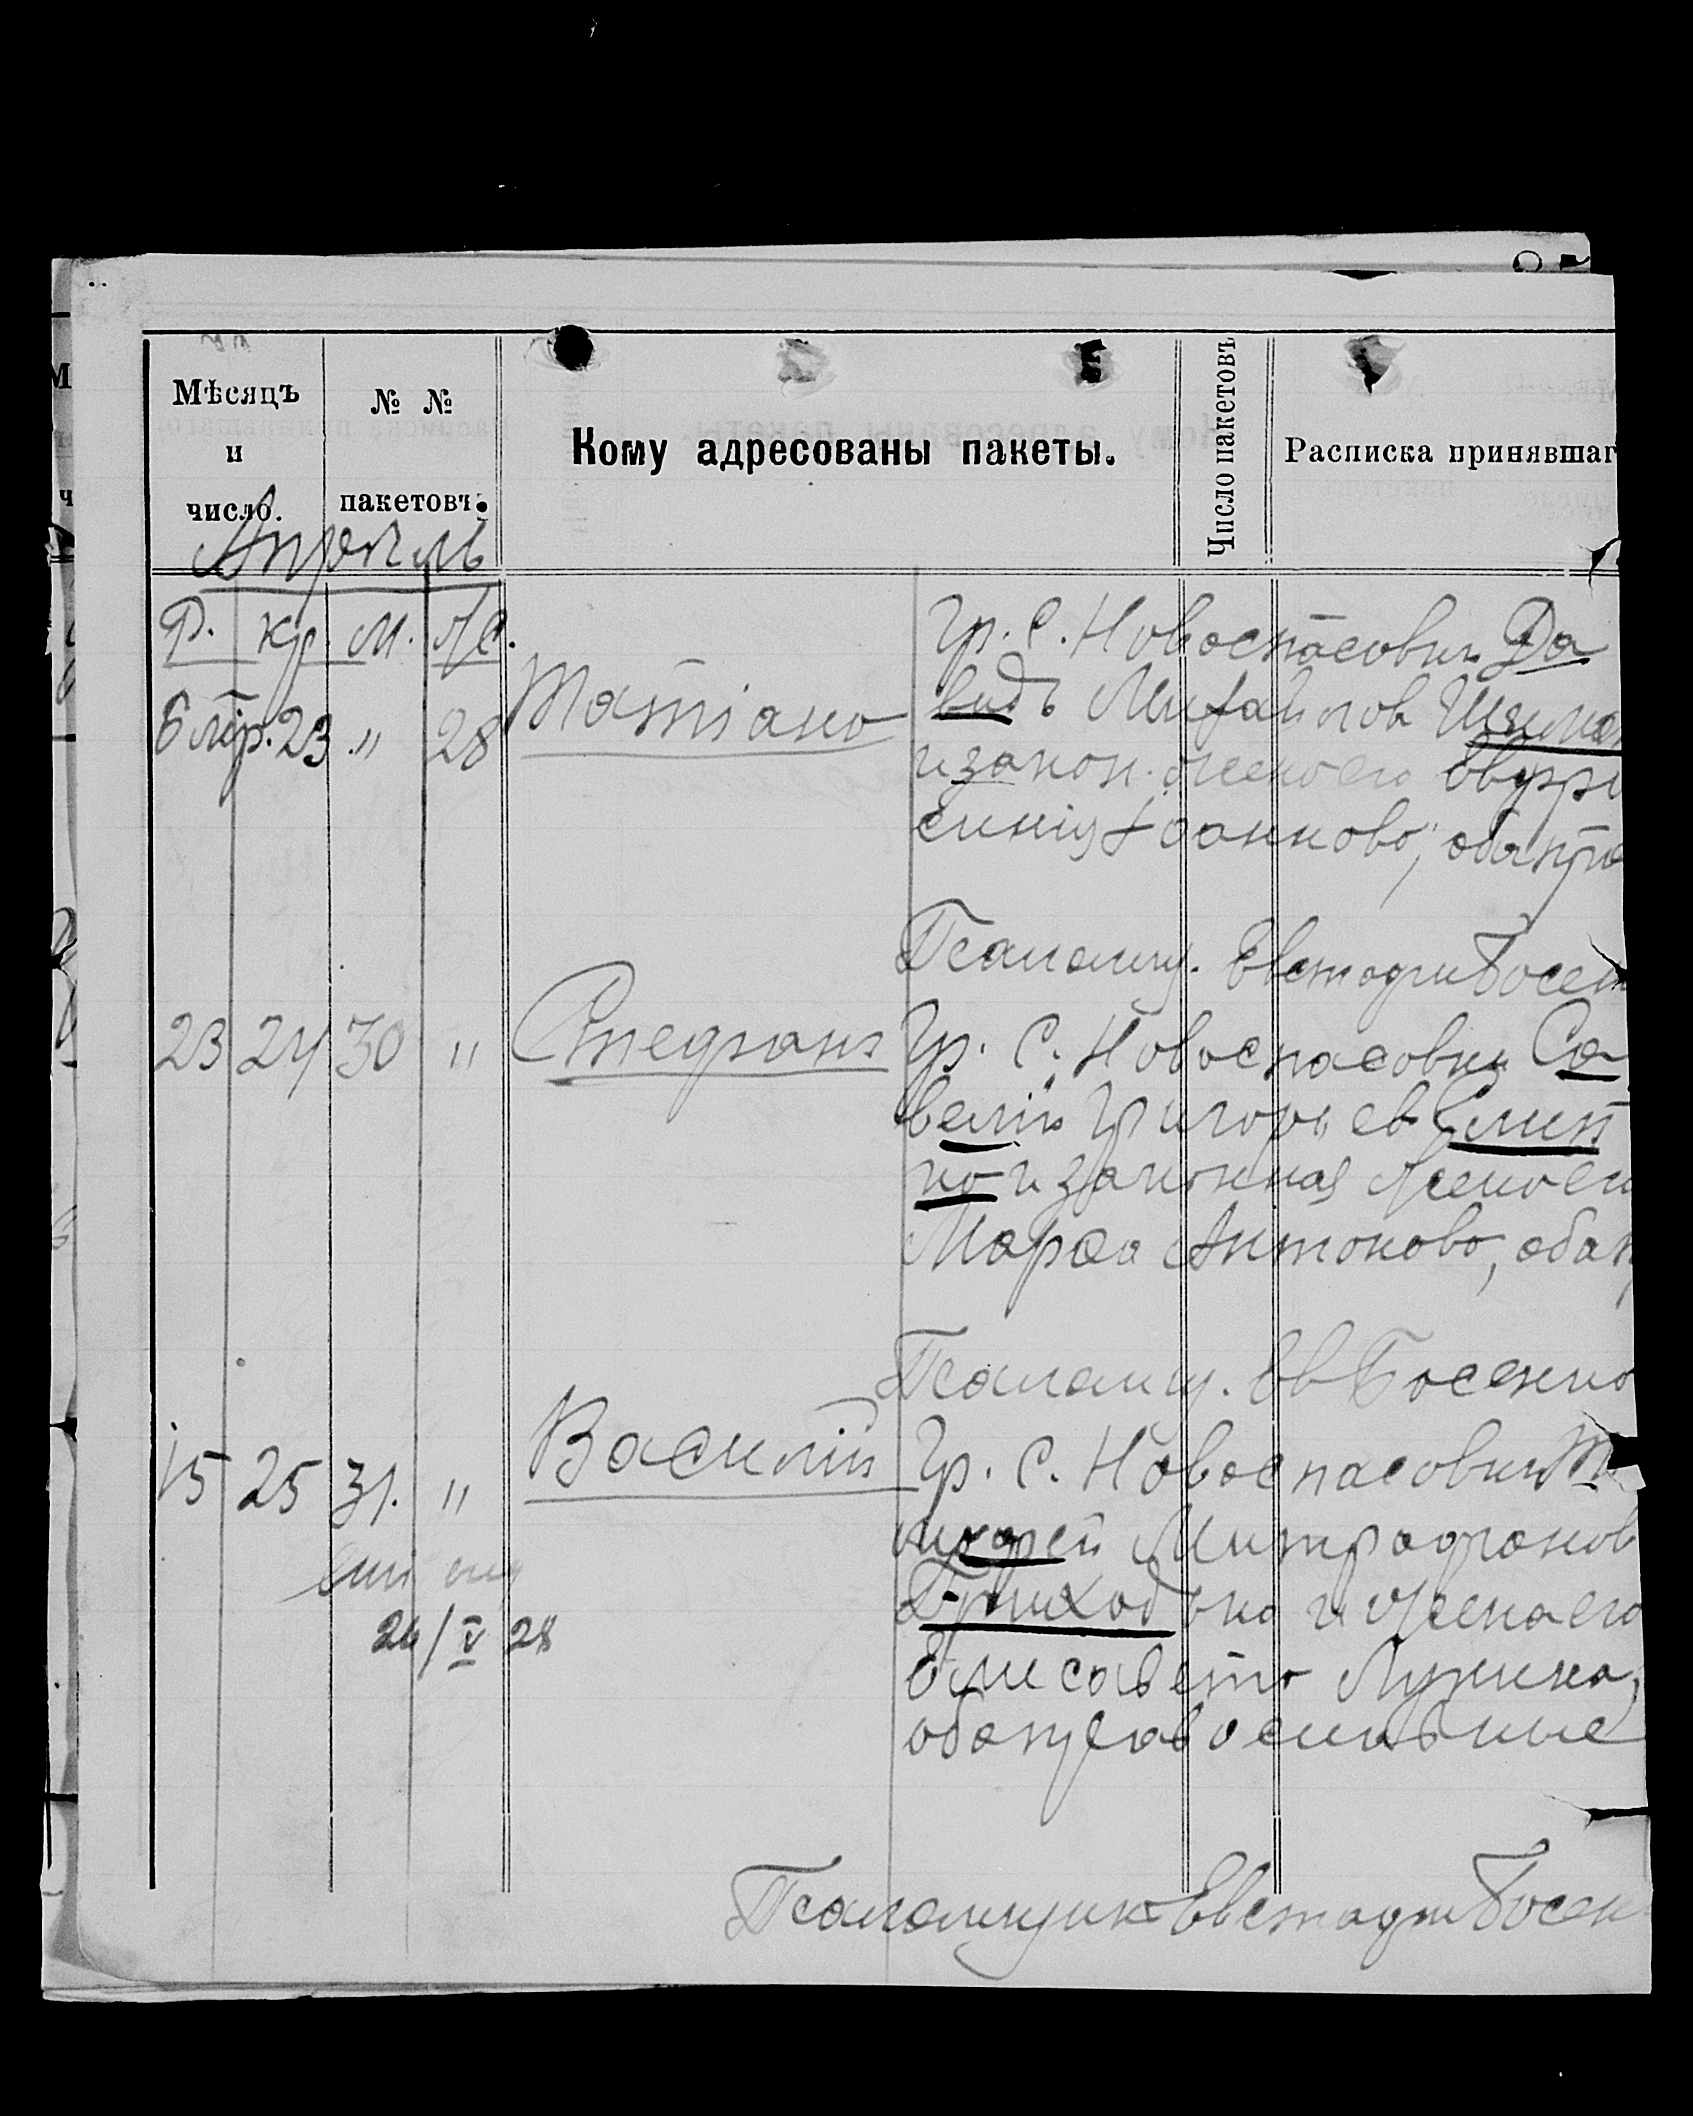 Мѣсяцъ
и
число.
№ №
пакетовъ.
Кому адресованы пакеты.
Число пакетовъ
Расписка принявшаг
Апрель
Р. Кр. М. Ж.
6 мр. 23 „ 28 Татіана
Гр. С. Новоспасовки Да
видъ Михайлов
и закон. жена его Евфро
синия Іоаннова, оба пра
Псаломщ. Евстафи Босен
23 24 30 „ Стефанъ
Гр. С. Новоспасовки Са
велій Григорьев
и законная жена его
Марфа Антонова, оба п
Псаломщ. Ев Босенко
15 25 31. „ Василій
Гр. С. Новоспасовки Ти
мофей Митрофанов
Приходько и жена его
Елисавета Лукина,
оба православные
26/V 28
Псаломщик Евстафи Босен